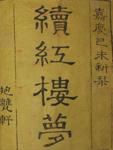 嘉慶己未新栞
續紅樓夢
抱甕軒